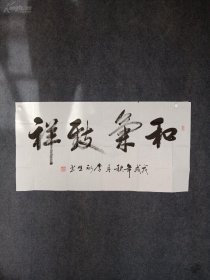 和氣致祥
戊戌年秋月李